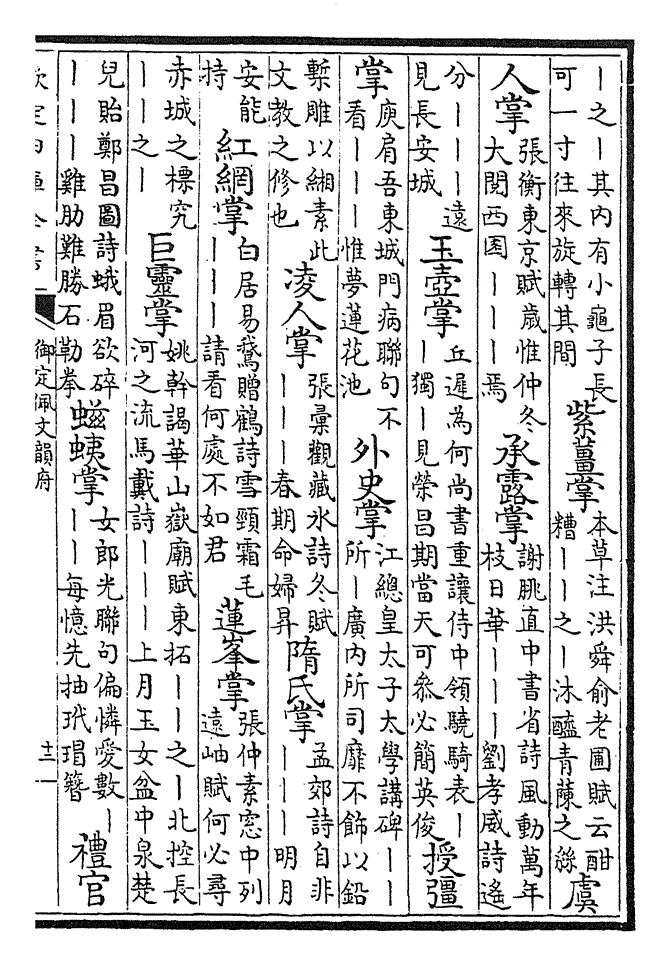 丨之丨其内有小龜子長
可一寸往來旋轉其間
紫薑掌
本草注洪舜俞老圃賦云酣
糟丨丨之丨沐醯青蔯之絲
虞
人掌
張衡東京賦歲惟仲冬
大閱西園丨丨丨焉
承露掌
謝朓直中書省詩風動萬年
枝日華丨丨丨劉孝威詩遙
分丨丨丨遠
見長安城
玉壺掌
丘遲為何尚書重讓侍中領驍騎表丨
丨獨丨見榮昌期當天可參必簡英俊
授彊
掌
庾肩吾東城門病聯句不
看丨丨丨惟夢蓮花池
外史掌
江總皇太子太學講碑丨丨
所丨廣内所司靡不飾以鉛
槧雕以緗素此
文教之修也
凌人掌
張彙觀藏冰詩冬賦
丨丨丨春期命婦昇
隋氏掌
孟郊詩自非
丨丨丨明月
安能
持
紅網掌
白居易鵞贈鶴詩雪頸霜毛
丨丨丨請看何處不如君
蓮峯掌
張仲素窓中列
遠岫賦何必尋
赤城之標究
丨丨之丨
巨靈掌
姚幹謁華山嶽廟賦東拓丨丨之丨北控長
河之流馬戴詩丨丨丨上月玉女盆中泉楚
兒貽鄭昌圖詩蛾眉欲碎
丨丨丨雞肋難勝石勒拳
螆蛦掌
女郎光聯句偏憐愛數丨
丨丨每憶先抽玳瑁簪
禮官
欽定四庫全書
御定佩文韻府
十三